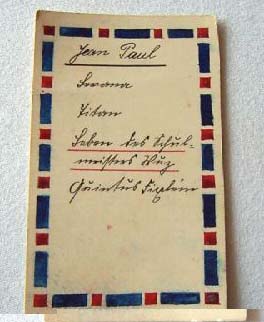 Jean Paul
Levana
Titan
Leben des Schul-
meisters Wuz
Quintus Fixlein